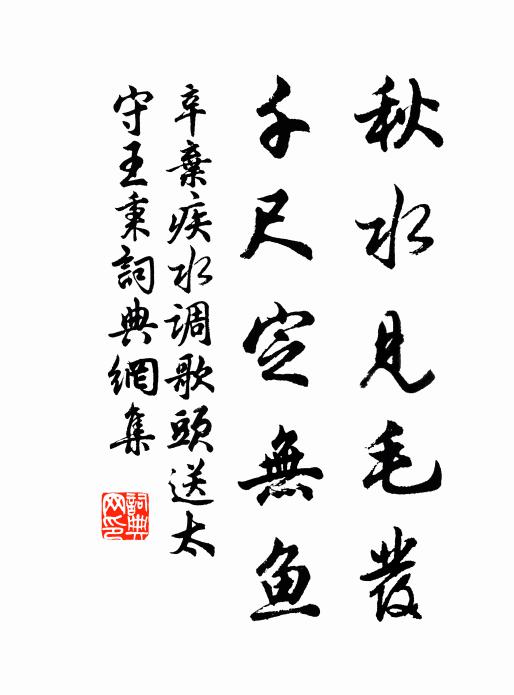 秋水見毛發
千尺定無魚
辛棄疾水调歌頭送太
守王秉詞典網集
詞典
网印